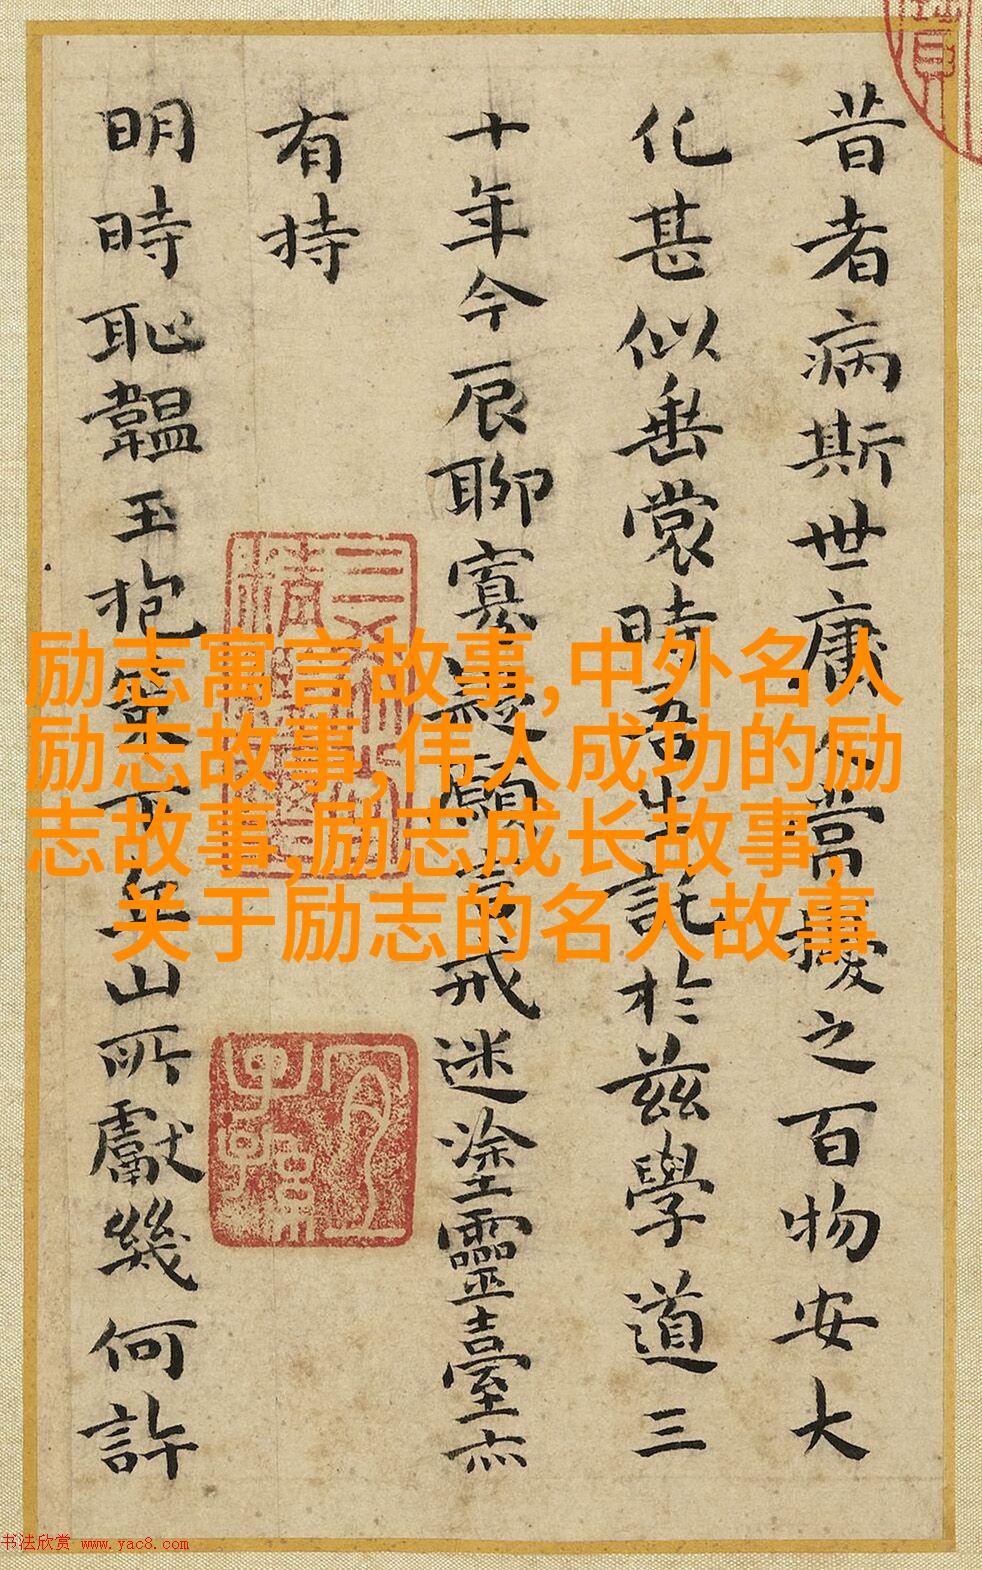 昔者病斯世庸人嘗擾之百物安大
化甚似垂裳時吾生託於茲學道三
十年今辰聊寡願言戒迷塗靈臺亦
有持
明時恥韞玉抱山所獻幾何許
励志寓言故事,中外名人
励志故事,伟人成功的励
志故事,励志成长故事,
关于励志的名人故事
书法欣赏 www.yac8.com